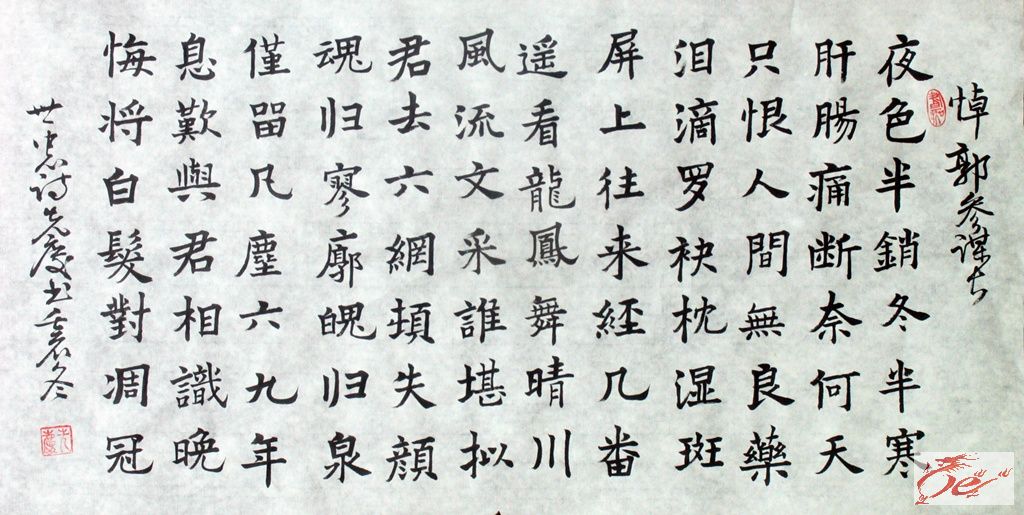 悼郭参谋长
夜色半銷冬半寒
肝腸痛断奈何天
只恨人間無良藥
泪滴罗袂枕湿斑
屏上往来經几番
遥看龍鳳舞晴川
風流文采誰堪拟
君去六網頓失顔
魂归寥廓魄归泉
僅留凡塵六九年
息歎與君相識晚
悔将白髮對凋冠
世忠詩